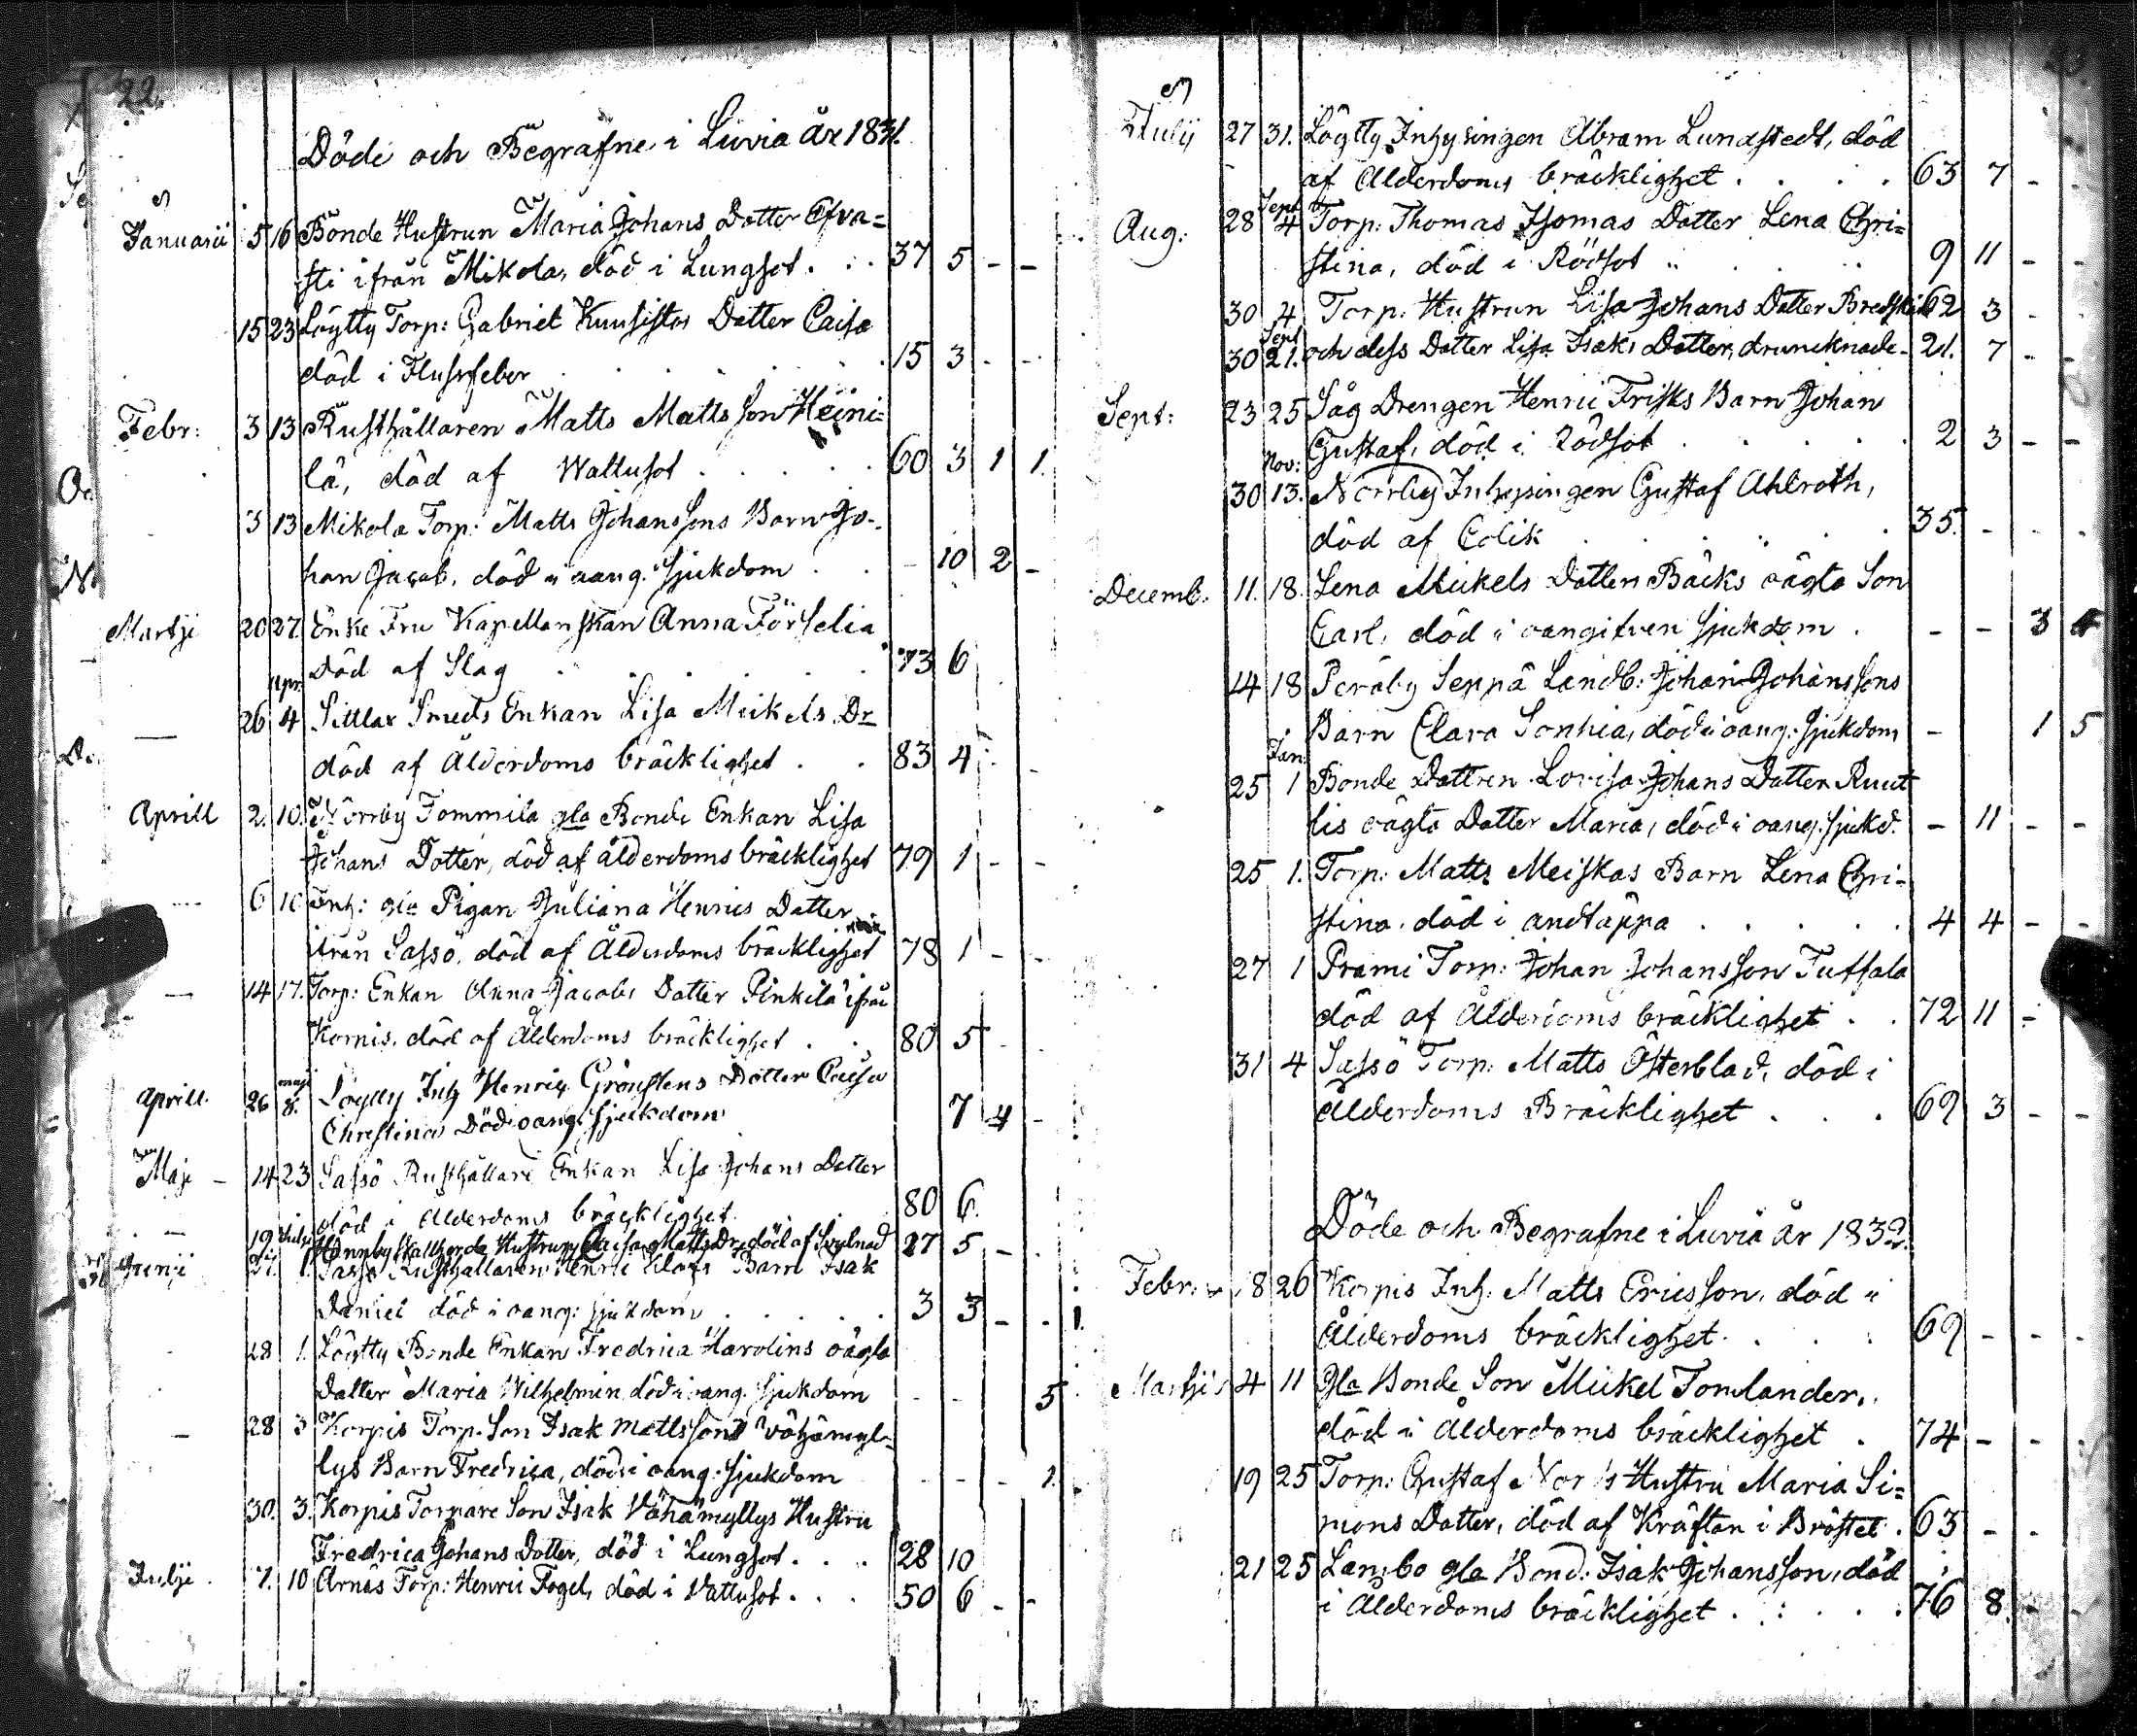 22.
Döde och Begrafne i Luvia år 1831.
Januarii 5 16 Bonde Hustrun Maria Johans Dotter Efva=
sti ifrån Mikola, död i Lungsot . . . 37 5 - -
15 23 Löytty Torp: Gabriel Kuusistos Dotter Caisa
död i Flussfeber . . . . . . 15 3 - -
Febr: 3 13 Rusthållaren Matts Matts Son Heini-
lä, död af Wattusot . . . . . 60 3 1 1.
3 13 Mikola Torp: Matts Johanssons Barn Jo-
han Jacob, död i oang. Sjukdom . . - 10 2 -
Martji 20 27. Enke Fru Kapellanskan Anna Förselia
Död af Slag . . . . . . 73 6
26 Apr. 4 Sittlax Smeds Enkan Lisa Mickels Dr
död af Ålderdoms bräcklighet . . 83 4 -
Aprill 2. 10. Norrby Tommila gla Bonde Enkan Lisa
Johans Dotter, död af ålderdoms bräcklighet 79 1 - -
6 10 Inh: gla Pigan Juliana Henrics Dotter
ifrån Sassö, död af Ålderdoms bräcklighet 78 1 - -
14 17. Torp: Enkan Anna Jacobs Dotter Pinkilä ifrån
Korpis, död af Ålderdoms bräcklighet . . 80 5 - -
Aprill. 26 maji 8. Löytty Inh Henric Grönstens Dotter Caisa
Christina Död i oang. Sjukdom 7 4 -
Maji - 14 23 Sassö Rusthållare Enkan Lisa Johans Dotter
död i Ålderdoms bräcklighet . 80 6.
19 Hustrun Caisa Matts Dr, död af 27 5 -
Junii 21. 1. Sassö Rusthållaren Henric Barn Isak
Daniel död i oang: Sjukdom . . . . . 3 3 - -
28 1. Löytty Bonde Enkan Fredrica Harolins oägta
Dotter Maria Wilhelmin, död i oang. Sjukdom - - 5
28 3 Korpis Torp. Son Isak Mattssons Vähämyl-
lys Barn Fredrica, död i oang: Sjukdom - - - 1.
30. 3. Korpis Torpare Son Isak Vähämyllys Hustru
Fredrica Johans Dotter, död i Lungsot . . . 28 10
Julji. 7. 10 Arnäs Torp: Henric Fogel, död i Vattusot . . . 50 6 - -
Julij 27 31. Löytty Inhysingen Abram Lundstedt, död
af Ålderdoms bräcklighet . . . . 63 7 -
Aug: 28 Sept 4 Torp: Thomas Thomas Dotter Lena Chri=
stina, död i Rödsot . . . 9 11 - -
30 4 Torp: Hustrun Lisa Johans Dotter 62 3 -
30 Sept 21. och dess Dotter Lisa Isaks Dotter, druncknade - 21. 7 - -
Sept: 23 25 Såg Drengen Henric Frisks Barn Johan
Gustaf, död i Rödsot . . . . . 2 3 - -
30 Nov: 13. Norrby Inhysingen Gustaf Ahlroth,
död af Colik . . . . . 35. - - -
Decemb. 11. 18. Lena Mickels Dotters Bäcks oägta Son
Carl, död i oangifven Sjukdom . - - 3 4
14 18 Peräby Seppä Landb: Johan Johanssons
Barn Clara Sophia, död i oang: Sjukdom - 1 5
25 Jan: 1 Bonde Dottren Lovisa Johans Dotter Ruut
lis oägta Dotter Maria, död i oang: Sjukd. - 11 - -
25 1. Torp: Matts Meiskas Barn Lena Chri-
stina, död i andtäppa . . . . . 4 4 - -
27 1 Prami Torp: Johan Johansson
död af Ålderdoms bräcklighet . . 72 11 -
31 4 Sassö Torp: Matts Österblad, död i
Ålderdoms Bräcklighet . . . 69 3 - -
Döde och Begrafne i Luvia år 1832.
Febr: 8 26 Korpis Inh: Matts Ericsson, död i
Ålderdoms bräcklighet. . . . 69 - - -
Martji 4 11 Gla Bonde Son Mickel Tomlander,
död i Ålderdoms bräcklighet . 74 - - -
19 25 Torp: Gustaf Hustru Maria Si=
mons Dotter, död af Kräftan i Bröstet . 63 - -
21 25 Lambo gla Bond: Isak Johansson, död
i Ålderdoms bräcklighet . . . . 76 8. - -